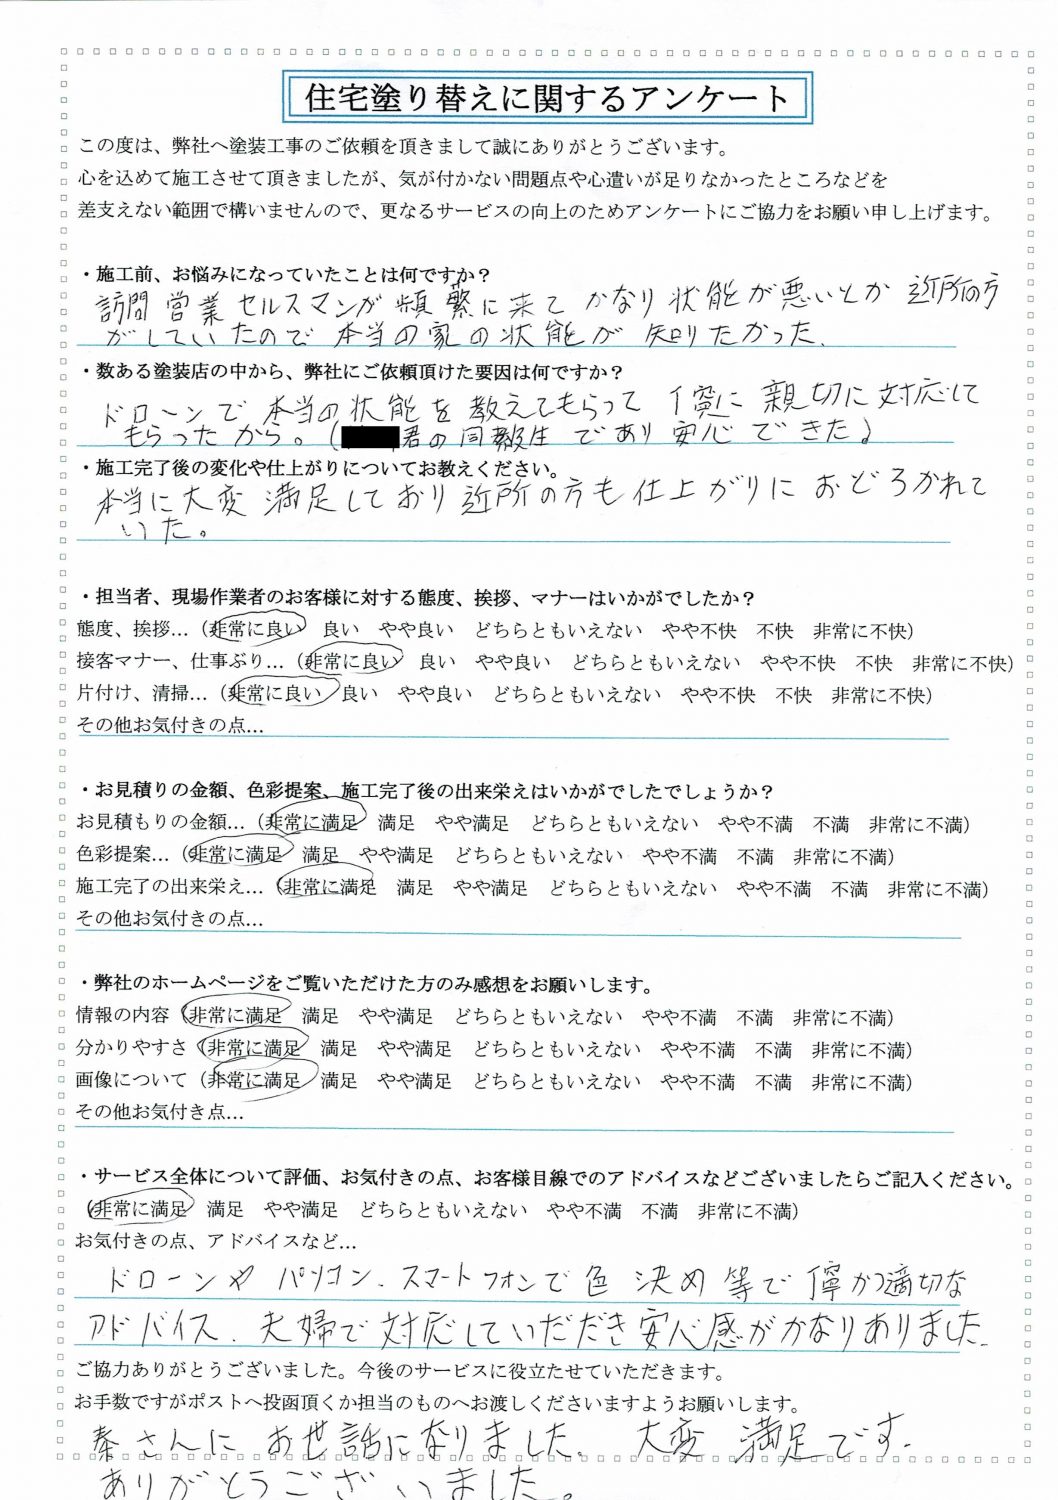 住宅塗り替えに関するアンケート
この度は、弊社へ塗装工事のご依頼を頂きまして誠にありがとうございます。
心を込めて施工させて頂きましたが、気が付かない問題点や心遣いが足りなかったところなどを
差支えない範囲で構いませんので、更なるサービスの向上のためアンケートにご協力をお願い申し上げます。
・施工前、お悩みになっていたことは何ですか？
訪問営業セルスマンが頻繁に来てかなり状態が悪いとか近所の方
がしていたので本当の家の状態が知りたかった.
・数ある塗装店の中から、弊社にご依頼頂けた要因は何ですか？
ドローンで本当の状態を教えてもらって丁寧に親切に対応して
もらったから。(君の同級生であり安心できた)
・施工完了後の変化や仕上がりについてお教えください。
本当に大変満足しており近所の方も仕上がりにおどろかれて
いた。
・担当者、現場作業者のお客様に対する態度、挨拶、マナーはいかがでしたか？
態度、挨拶…（非常に良い　良い　やや良い　どちらともいえない　やや不快　不快　非常に不快）
接客マナー、仕事ぶり…（非常に良い　良い　やや良い　どちらともいえない　やや不快　不快　非常に不快）
片付け、清掃…（非常に良い　良い　やや良い　どちらともいえない　やや不快　不快　非常に不快）
その他お気付きの点…
・お見積りの金額、色彩提案、施工完了後の出来栄えはいかがでしたでしょうか？
お見積もりの金額…（非常に満足　満足　やや満足　どちらともいえない　やや不満　不満　非常に不満）
色彩提案…（非常に満足　満足　やや満足　どちらともいえない　やや不満　不満　非常に不満）
施工完了の出来栄え…（非常に満足　満足　やや満足　どちらともいえない　やや不満　不満　非常に不満）
その他お気付きの点…
・弊社のホームページをご覧いただけた方のみ感想をお願いします。
情報の内容（非常に満足　満足　やや満足　どちらともいえない　やや不満　不満　非常に不満）
分かりやすさ（非常に満足　満足　やや満足　どちらともいえない　やや不満　不満　非常に不満）
画像について（非常に満足　満足　やや満足　どちらともいえない　やや不満　不満　非常に不満）
その他お気付き点…
・サービス全体について評価、お気付きの点、お客様目線でのアドバイスなどございましたらご記入ください。
（非常に満足　満足　やや満足　どちらともいえない　やや不満　不満　非常に不満）
お気付きの点、アドバイスなど…
ドローンやパソコン.スマートフォンで色決め等で寧かつ適切な
アドバイス.夫婦で対応していだだき安心感がかなりありました.
ご協力ありがとうございました。今後のサービスに役立たせていただきます。
お手数ですがポストへ投函頂くか担当のものへお渡しくださいますようお願いします。
秦さんにお世話になりました.大変満足です.
ありがとうございました。